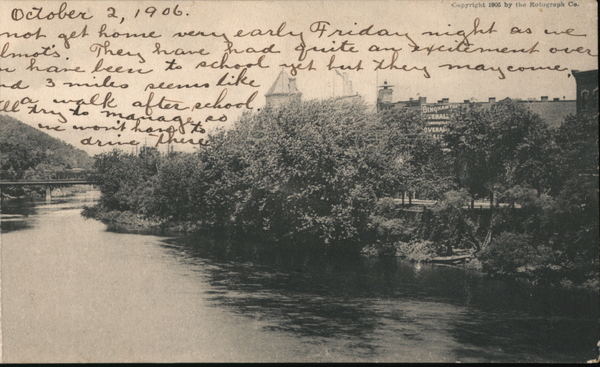 Copyright 1905 by the Rotograph Co.
October 2, 1906.
not get home very early Friday night as we
lmot's. They have had quite an excitement over
have been to school yet but they may come
nd 3 miles seems like
a walk after school
ll try to manage so
we won't have to
drive there